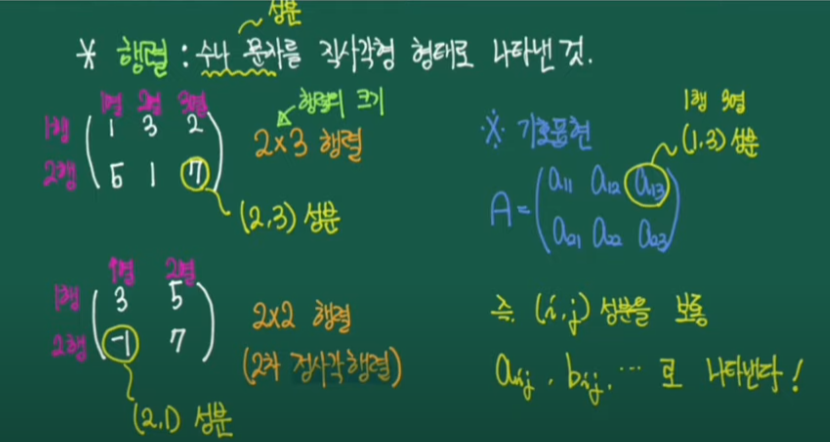 성분
* 행렬 : 수나 문자를 직사각형 형태로 나타낸 것.
1열 2열 3열
1행 ( 1 3 2 )
2행 ( 5 1 7 )
행렬의 크기
2×3 행렬
(2,3) 성분
1열 2열
1행 ( 3 5 )
2행 ( -1 7 )
2×2 행렬
(2차 정사각행렬)
(2,1) 성분
※ 기호표현
1행 3열
(1,3) 성분
A = ( a11 a12 a13
a21 a22 a23 )
즉. (i,j) 성분을 보통
aij, bij, ⋯ 로 나타낸다!